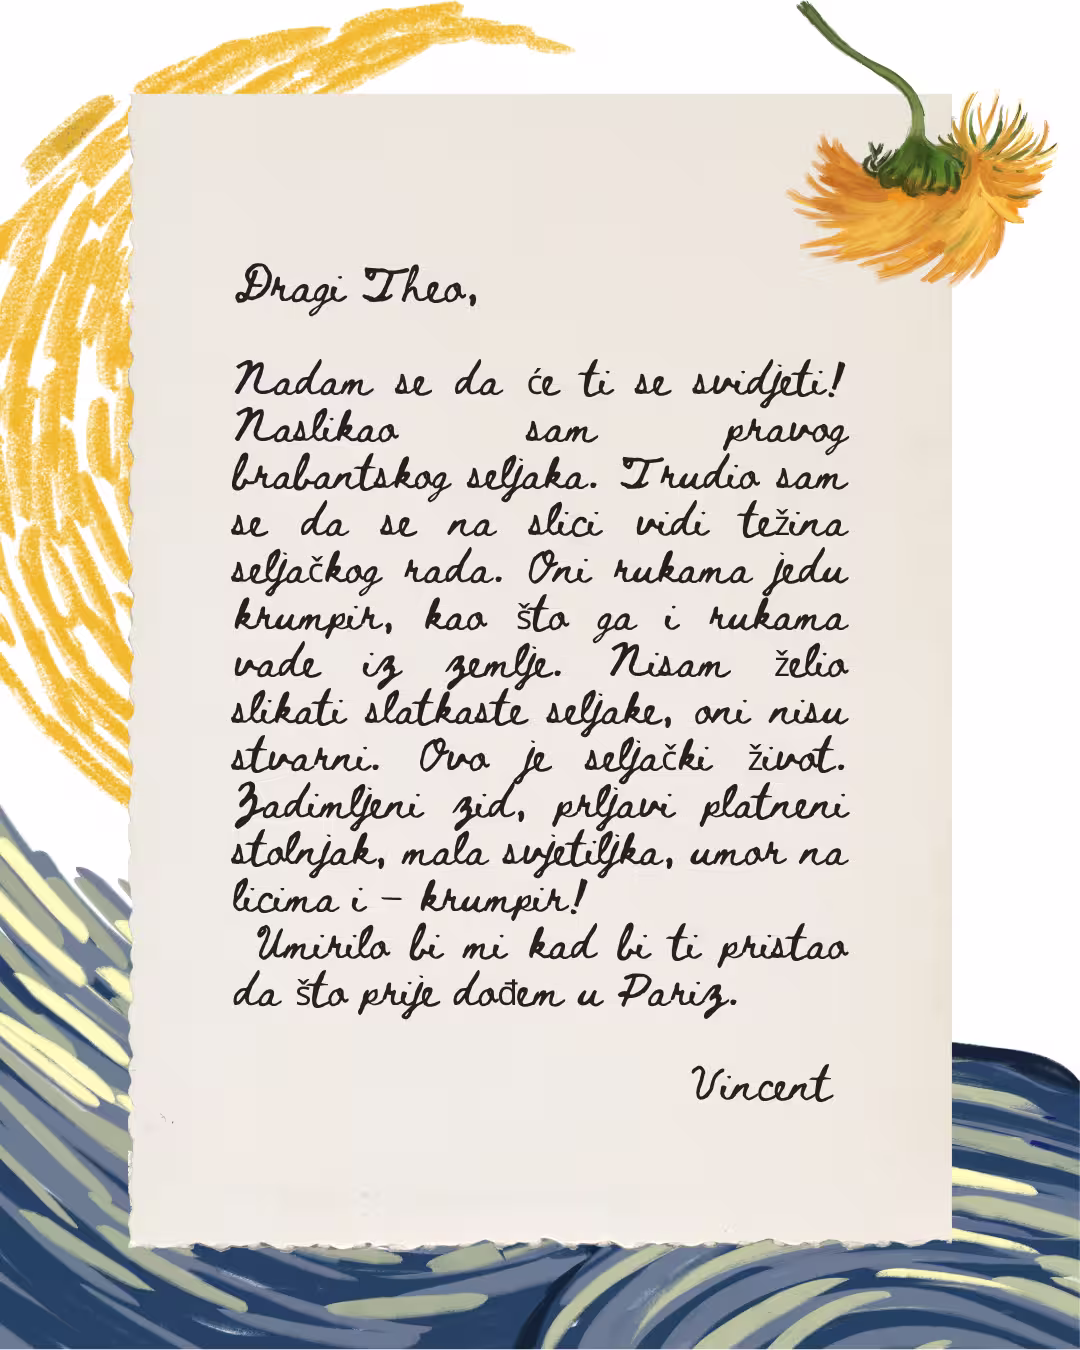 Dragi Theo,
Nadam se da će ti se svidjeti!
Naslikao sam pravog
brabantskog seljaka. Trudio sam
se da se na slici vidi težina
seljačkog rada. Oni rukama jedu
krumpir, kao što ga i rukama
vade iz zemlje. Nisam želio
slikati slatkaste seljake, oni nisu
stvarni. Ovo je seljački život.
Zadimljeni zid, prljavi platneni
stolnjak, mala svjetiljka, umor na
licima i – krumpir!
Umirilo bi mi kad bi ti pristao
da što prije dođem u Pariz.
Vincent